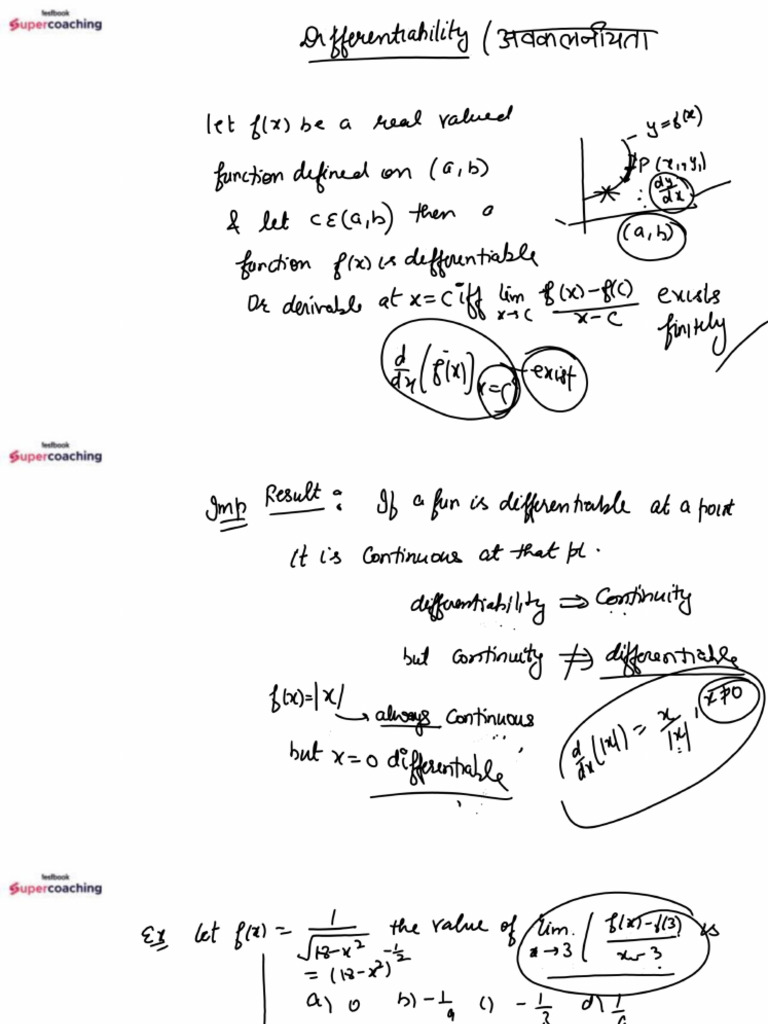 testbook
Supercoaching
Differentiability (अवकलनीयता
let f(x) be a real valued
function defined on (a, b)
& let c ∈ (a, b) then a
function f(x) is differentiable
Or derivable at x = c iff lim x→c f(x) - f(c) / x - c exists
finitely
y = f(x)
P(x₁, y₁)
∴ dy/dx
(a, b)
d/dx (f(x)) x = c exist
testbook
Supercoaching
Imp Result : If a fun is differentiable at a point
it is continuous at that pt.
differentiability ⇒ Continuity
but continuity ⇏ differentiable
f(x) = |x|
→ always continuous
but x = 0 differentiable
d/dx (|x|) = x/|x|, x ≠ 0
testbook
Supercoaching
Ex let f(x) = 1/√(18-x²) the value of lim x→3 ( f(x) - f(3) / x - 3 is
= (18-x²)^-1/2
a) 0 b) -1/9 c) -1/3 d) 1/9